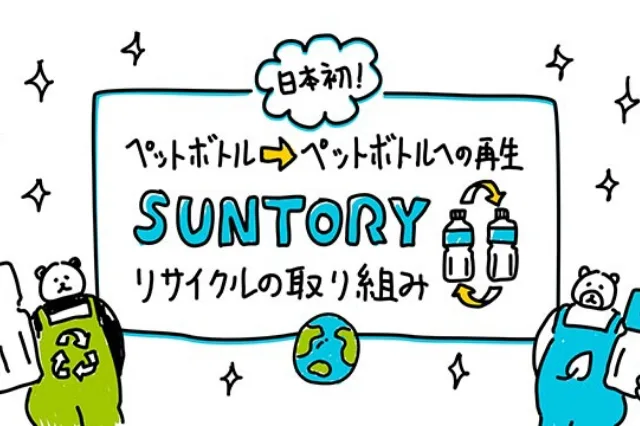 日本初!
ペットボトル➡ペットボトルへの再生
SUNTORY
リサイクルの取り組み